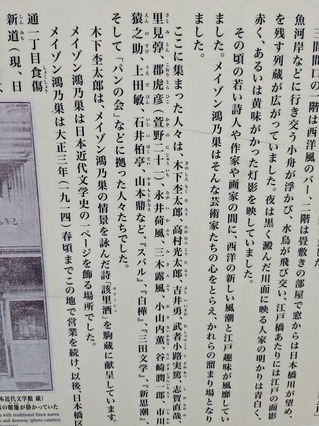 三間間口の一階は西洋風のバー、二階は畳敷きの部屋で窓からは日本橋川が望め、
魚河岸などに行き交う小舟が浮かび、水鳥が飛び交い、江戸橋あたりには江戸の面影
を残す列蔵が広がっていました。夜は黒く澱んだ川面に映る人家の明かりは青白く、
赤く、あるいは黄味がかった灯影を映していました。
その頃の若い詩人や作家や画家の間に、西洋の新しい風潮と江戸趣味が風靡してい
ました。メイゾン鴻乃巣はそんな芸術家たちの心をとらえ、かれらの溜まり場となり
ました。
ここに集まった人々は、木下杢太郎、高村光太郎、吉井勇、武者小路実篤、志賀直哉、
里見弴、郡虎彦(萱野二十一)、永井荷風、三木露風、小山内薫、谷崎潤一郎、市川
猿之助、上田敏、石井柏亭、山本鼎など、『スバル』、『白樺』、『三田文学』、『新思潮』、
そして「パンの会」などに拠った人々たちでした。
木下杢太郎は、メイゾン鴻乃巣の情景を詠んだ詩「該里酒」を駒蔵に献呈しています。
メイゾン鴻乃巣は日本近代文学史の一ページを飾る場所でした。
メイゾン鴻乃巣は大正三年(一九一四)春頃までこの地で営業を続け、以後、日本橋区
通一丁目食傷
新道(現、日
本近代文学館 蔵)
の暖簾が掛かっていた
with traditional linen noren
and doorway (photo courtesy